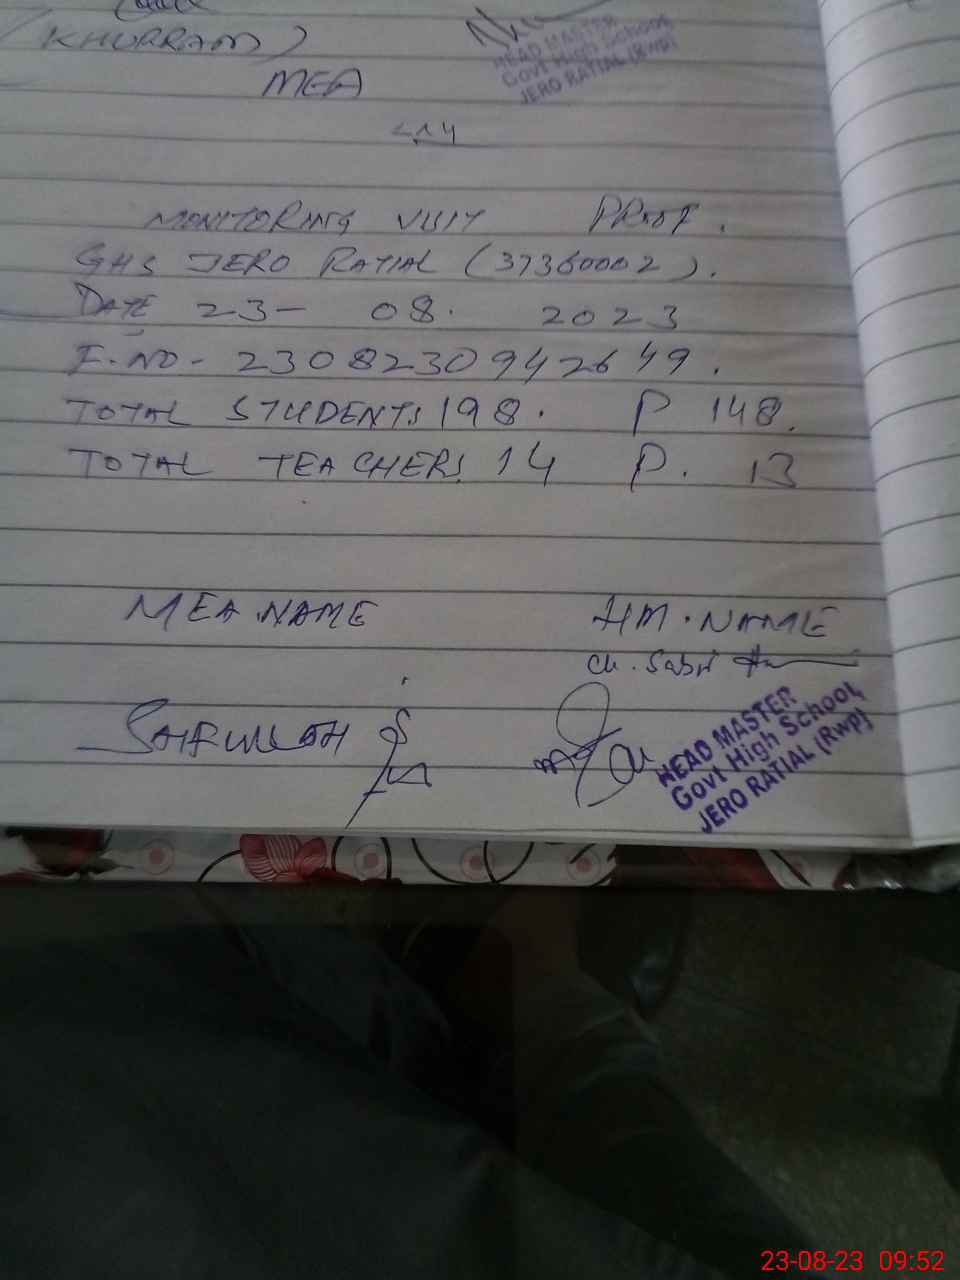 (KHURRAM)
MEA
HEAD MASTER
Govt High School
JERO RATIAL (Rwp)
MONITORING VISIT PROOF.
GHS JERO RATIAL (37360002).
DATE 23- 08. 2023
F.NO- 2308230942649.
TOTAL STUDENTS 198. P 148.
TOTAL TEACHERS 14 P. 13
MEA NAME HM. NAME
Ch. Sabir
SAIFULLAH
HEAD MASTER
Govt High School,
JERO RATIAL (Rwp)
23-08-23 09:52